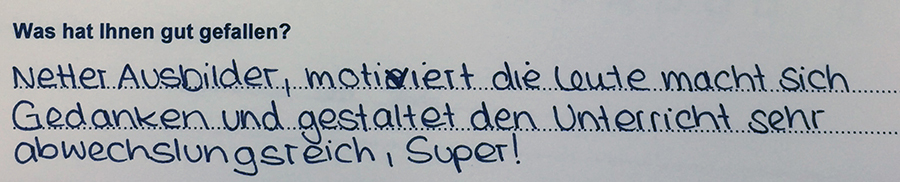 Was hat Ihnen gut gefallen?
Netter Ausbilder, motiviert die Leute macht sich
Gedanken und gestaltet den Unterricht sehr
abwechslungsreich, Super!